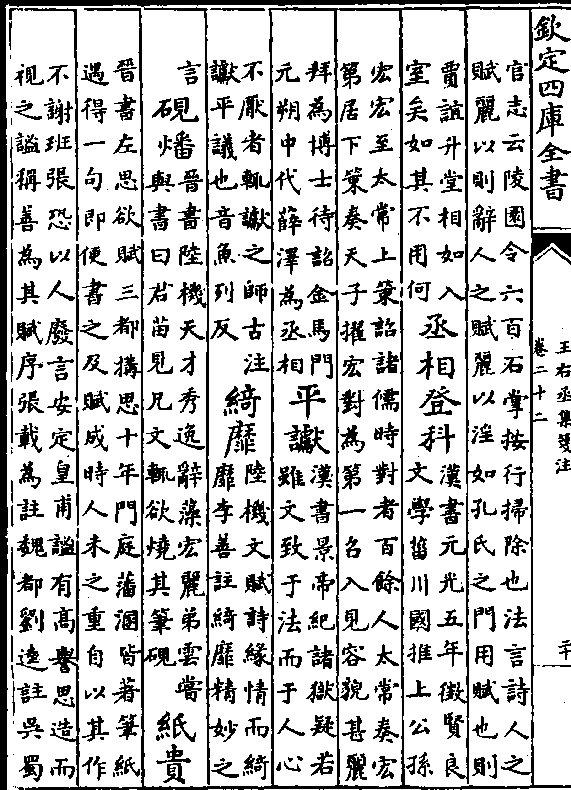 欽定四庫全書
王右丞集箋注
卷二十二
二十
官志云陵園令六百石掌按行掃除也法言詩人之
賦麗以則辭人之賦麗以淫如孔氏之門用賦也則
賈誼升堂相如入
室矣如其不用何
丞相登科
漢書元光五年徵賢良
文學菑川國推上公孫
宏宏至太常上策詔諸儒時對者百餘人太常奏宏
第居下策奏天子擢宏對為第一名入見容貌甚麗
拜為博士待詔金馬門
元朔中代薛澤為丞相
平讞
漢書景帝紀諸獄疑若
雖文致于法而于人心
不厭者輒讞之師古注
讞平議也音魚列反
綺靡
陸機文賦詩緣情而綺
靡李善註綺靡精妙之
言
硯燔
晉書陸機天才秀逸辭藻宏麗弟雲嘗
與書曰君苗見兄文輒欲燒其筆硯
紙貴
晉書左思欲賦三都搆思十年門庭藩溷皆著筆紙
遇得一句即便書之及賦成時人未之重自以其作
不謝班張恐以人廢言安定皇甫謐有高譽思造而
視之謐稱善為其賦序張載為註魏都劉逵註吳蜀